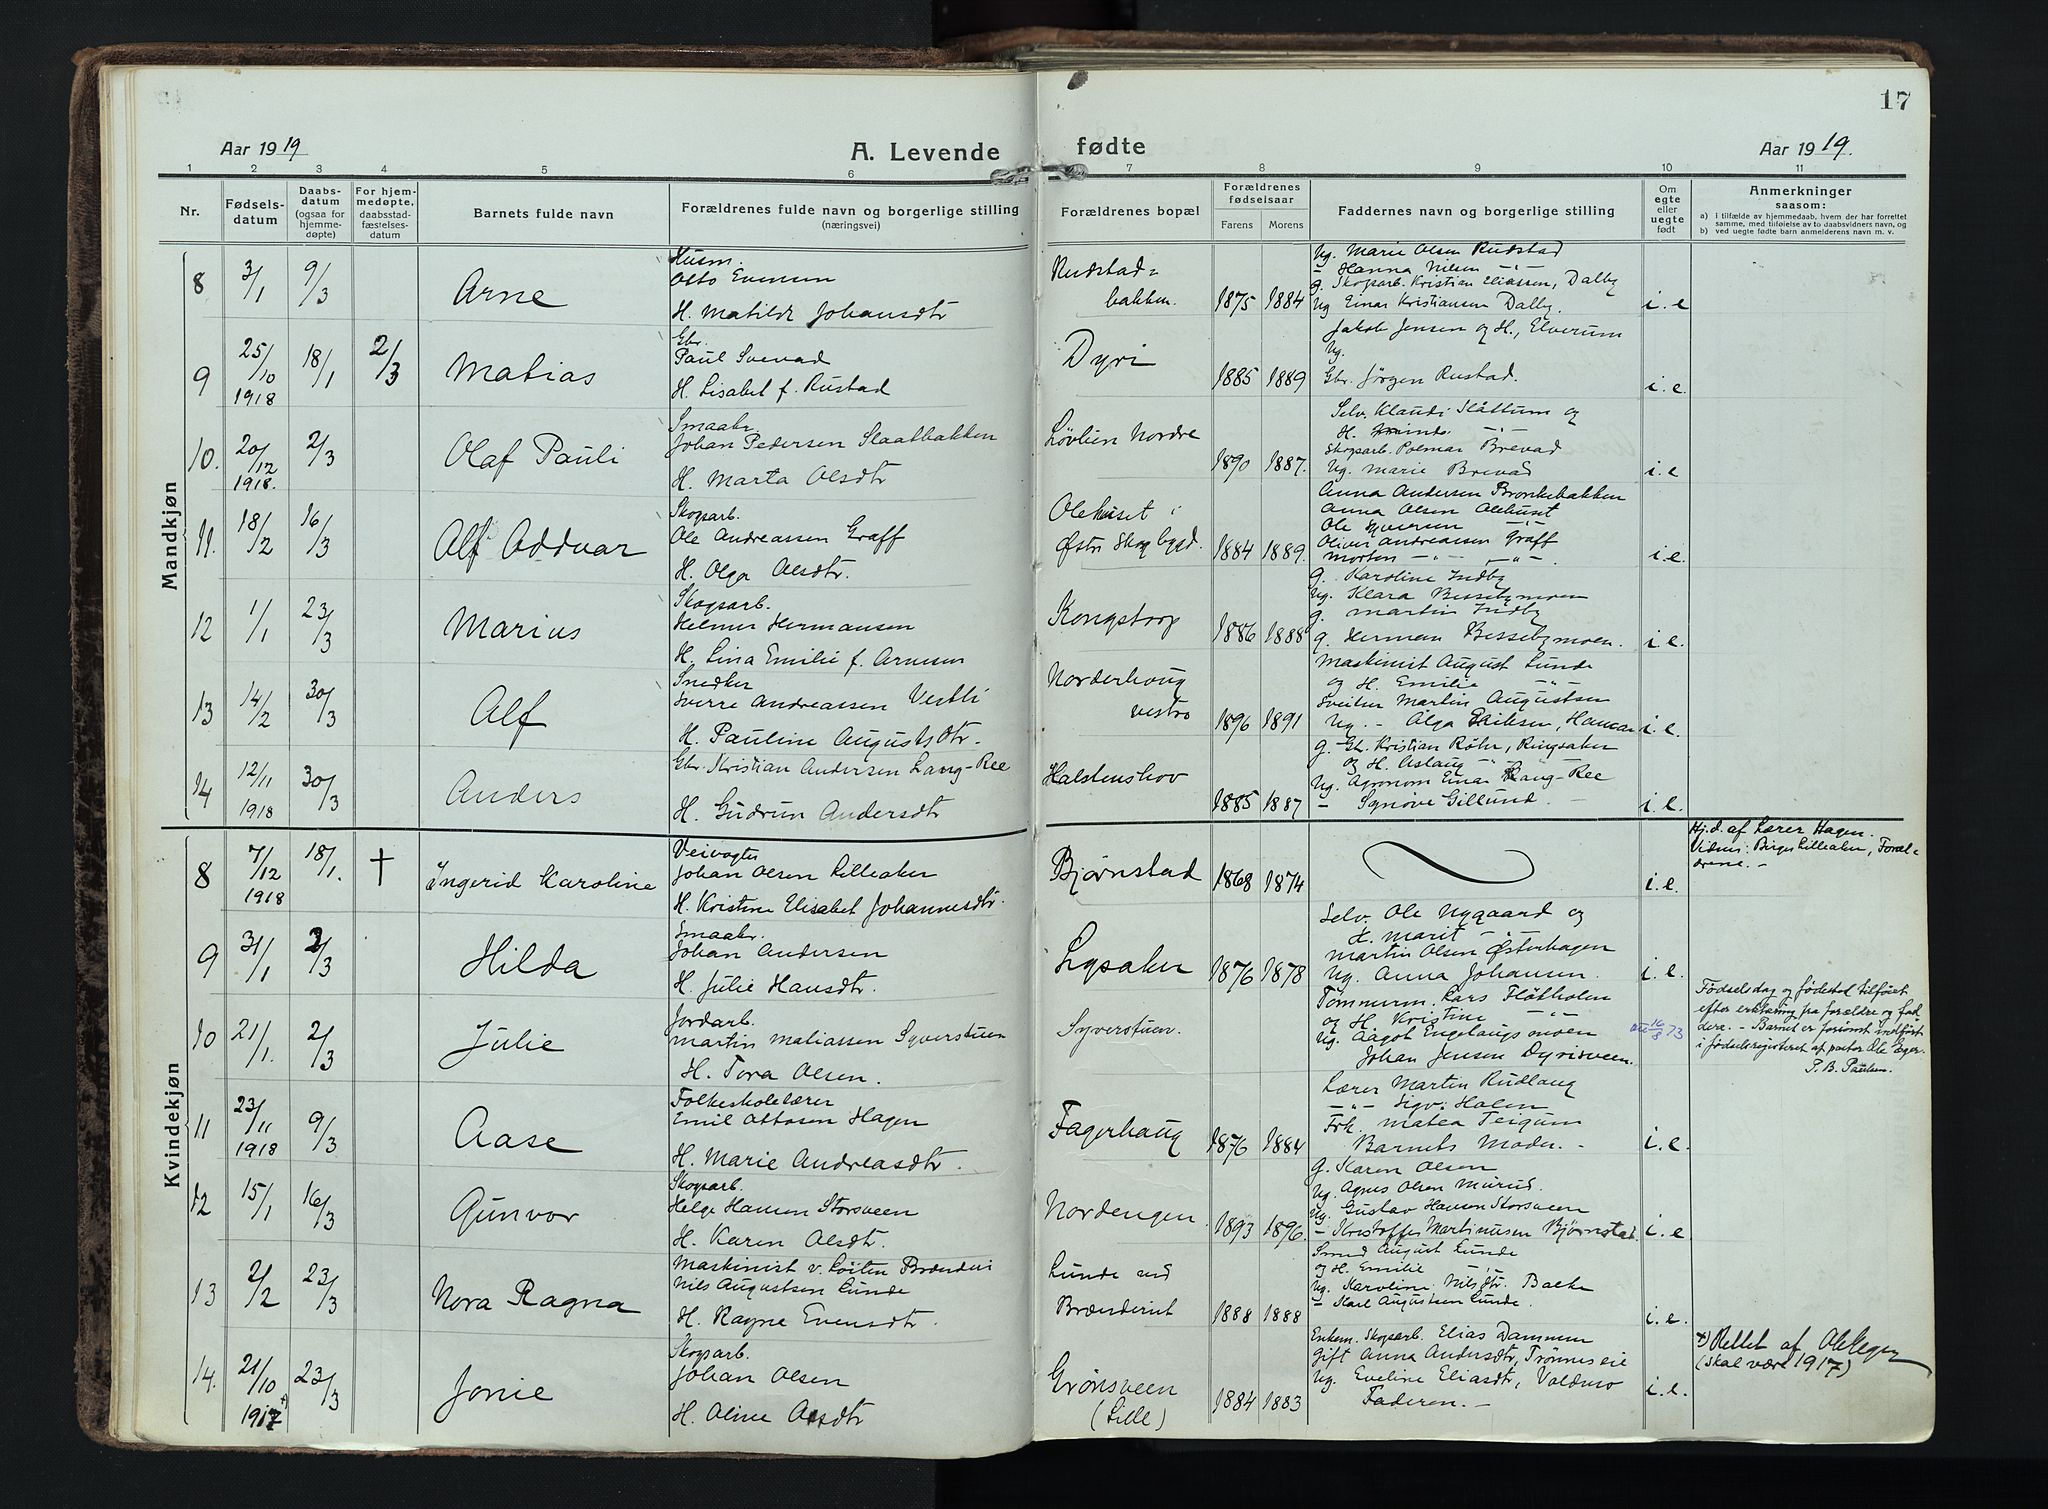 17
Aar 1919
A. Levende fødte
Aar 1919.
1 2 3 4 5 6 7 8 9 10 11
Nr.
Fødsels-
datum
Daabs-
datum
(ogsaa for
hjemme-
døpte)
For hjem-
medøpte,
daabsstad-
fæstelses-
datum
Barnets fulde navn
Forældrenes fulde navn og borgerlige stilling
(næringsvei)
Forældrenes bopæl
Forældrenes
fødselsaar
Farens Morens
Faddernes navn og borgerlige stilling
Om
egte
eller
uegte
født
Anmerkninger
saasom:
a) i tilfælde av hjemmedaab, hvem der har forrettet
samme, med tilføielse av to daabsvidners navn, og
b) ved uegte fødte barn anmelderens navn m. v.
Mandkjøn
8 3/1 9/3
Arne
Husm.
Otto Evensen
H. Matilde Johansdtr
Rudstad=
bakken.
1875 1884
Ug. Marie Olsen Rudstad
– Hanna Nilsen –"–
g. Skogsarb. Kristian Eliassen, Dalby
Ug Einar Kristiansen Dalby.
i. e
9 25/10 1918 18/1 2/3
Matias
Gbr.
Paul Svevad
H. Lisabet f. Rustad
Dyri
1885 1889
Jakob Jensen og H., Elverum
Ug.
Gbr. Jörgen Rustad.
i. e.
10. 20/12 1918. 2/3
Olaf Pauli
Smaabr.
Johan Pedersen Slaatbakken
H. Marta Olsdtr
Lövlien Nordre
1890 1887.
Selv. Klaudi Slåttum og
H. –"–
Skogsarb. Polmar Brevad
Ug. Marie Brevad
i. e
11. 18/2 16/3
Alf Oddvar
Skogsarb.
Ole Andreassen Graff
H. Olga Olsdtr.
Olehuset i
Østre Skogbygd.
1884 1889.
Anna Andersen Bronkebakken
Anna Olsen Olehuset
Ole Syversen –"–
Oliver Andreassen Graff
Morten –"– –"–.
i. e.
12 1/1 23/3
Marius
Skogsarb.
Helmer Hermansen
H. Lina Emilie f. Arnesen
Kongstorp
1886 1888
g. Karoline Indby
Ug. Klara Bessebymoen
g. Martin Indby
g. Herman Bessebymoen.
i. e.
13 14/2 30/3
Alf
Snedker
Sverre Andreassen Vestli
H. Pauline Augustsdtr.
Norderhoug
vestre
1896 1891
Maskinist August Lunde
og H. Emilie –"–
Sveitser Martin Augustsen
Ug. – Olga Eriksen, Hamar
i. e.
14 12/11 1918 30/3
Anders
Gbr. Kristian Andersen Lang-Ree
H. Gudrun Andersdtr
Halstenshov
1885 1887
g. Gbr. Kristian Röhr, Ringsaker
og H. Aslaug –"–
Ug. Agronom Einar Lang-Ree
– Synöve Gillund. –
i. e.
Kvindekjøn
8 7/12 1918 18/1. †
Ingerid Karoline
Veivogter
Johan Olsen Lilleaker
H. Kristine Elisabet Johannesdtr.
Bjørnstad
1868 1874
i. e.
Hj.d. af Lærer Hagen.
Vidner: Birger Lilleaker, Foræl=
drene. –
9 31/1 2/3
Hilda
Smaabr.
Johan Andersen
H. Julie Hansdtr.
Lysaker
1876 1878
Selv. Ole Nygaard og
H. Marit –"–
Martin Olsen Østerhagen
Ug. Anna Johansen.
i. e.
10 21/1. 2/3
Julie
Jordarb.
Martin Matiassen Syverstuen
H. Tora Olsen.
Syverstuen.
Tømmerm. Lars Flåtholen
og H. Kristine –"–
Ug. Aagot Engelaugsmoen
Johan Jensen Dyrisveen.
16/8 73
Fødselsdag og fødested tilføiet
efter erklæring fra forældre og fad
dere. – Barnet er forsömt indført
i fødselsregisteret af pastor Ole Eger.
P. B. Paulsen.
11 23/11 1918 9/3
Aase
Folkeskolelærer
Emil Ottosen Hagen
H. Marie Andreasdtr.
Fagerhaug
1876 1884
Lærer Martin Rudlang
–"– Sigv. Holen
Frk. Matea Teigum
Barnets Moder. –
i. e.
12 15/1 16/3
Gunvor
Skogsarb.
Helge Hansen Storsveen
H. Karen Olsdtr.
Nordengen.
1893 1896.
g. Karen Olsen
Ug. Agnes Olsen Murud.
Ug. Gustav Hansen Storsveen
– Kristoffer Martinusen Bjørnstad
i. e
13 2/2 23/3
Nora Ragna
Maskinist v. Löiten Brænderi
Nils Augustsen Lunde
H. Ragne Evensdtr.
Lunde ved
Brænderiet
1888 1888
Smed August Lunde
og H. Emilie –"–
Ug. Karoline Nilsdtr. Balke
– Karl Augustsen Lunde.
i. e.
14. 21/10 1917 +) 23/3
Jonie
Skogsarb.
Johan Olsen
H. Oline Olsdtr
Grønsveen
(Lille)
1884 1883
Enkem. Skogsarb. Elias Dammen
Gift Anna Andersdtr, Trønneseie
Ug. Eveline Eliasdtr, Valdmo
Faderen. –
i. e.
+) Rettet af OlEger
(skal være 1917)